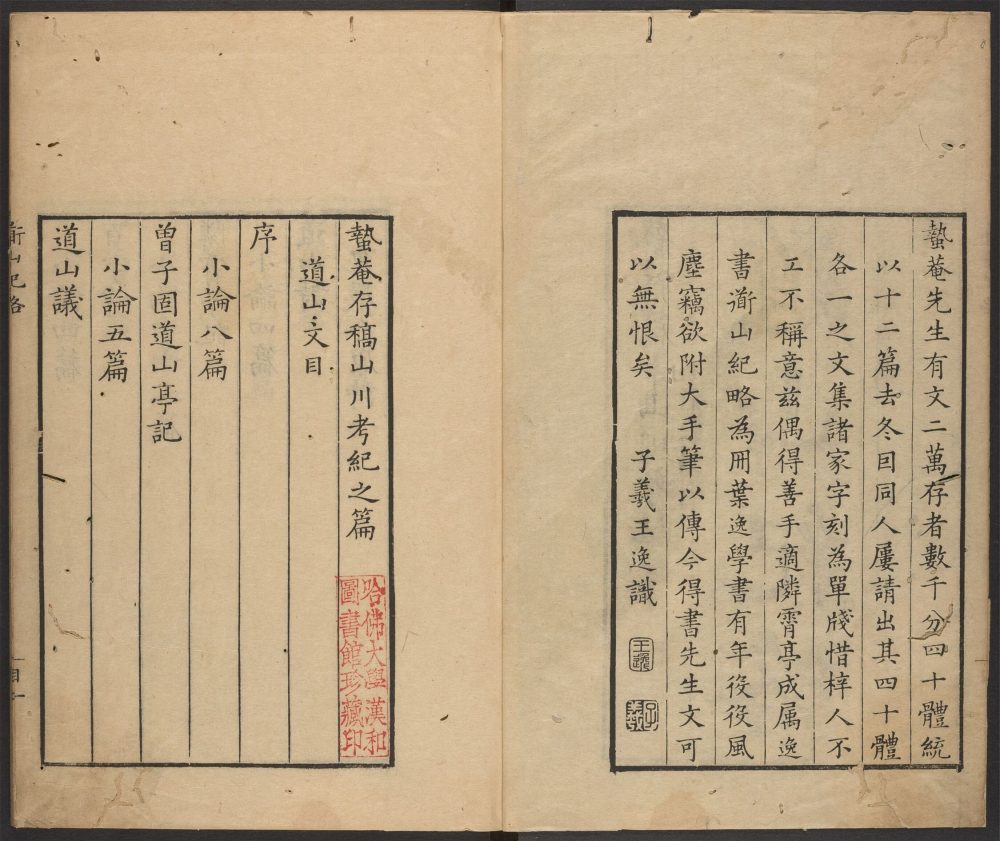 蟄菴先生有文二萬存者數千分四十體統
以十二篇去冬囙同人屢請出其四十體
各一之文集諸家字刻為單牋惜梓人不
工不稱意茲偶得善手適隣霄亭成属逸
書衜山紀略為冊葉逸學書有年役役風
塵竊欲附大手筆以傳今得書先生文可
以無恨矣 子羲王逸識
王逸
子羲
蟄菴存稿山川考紀之篇
道山文目
序
小論八篇
曾子固道山亭記
小論五篇
道山議
哈佛大學漢和
圖書館珍藏印
衜山紀略
目一